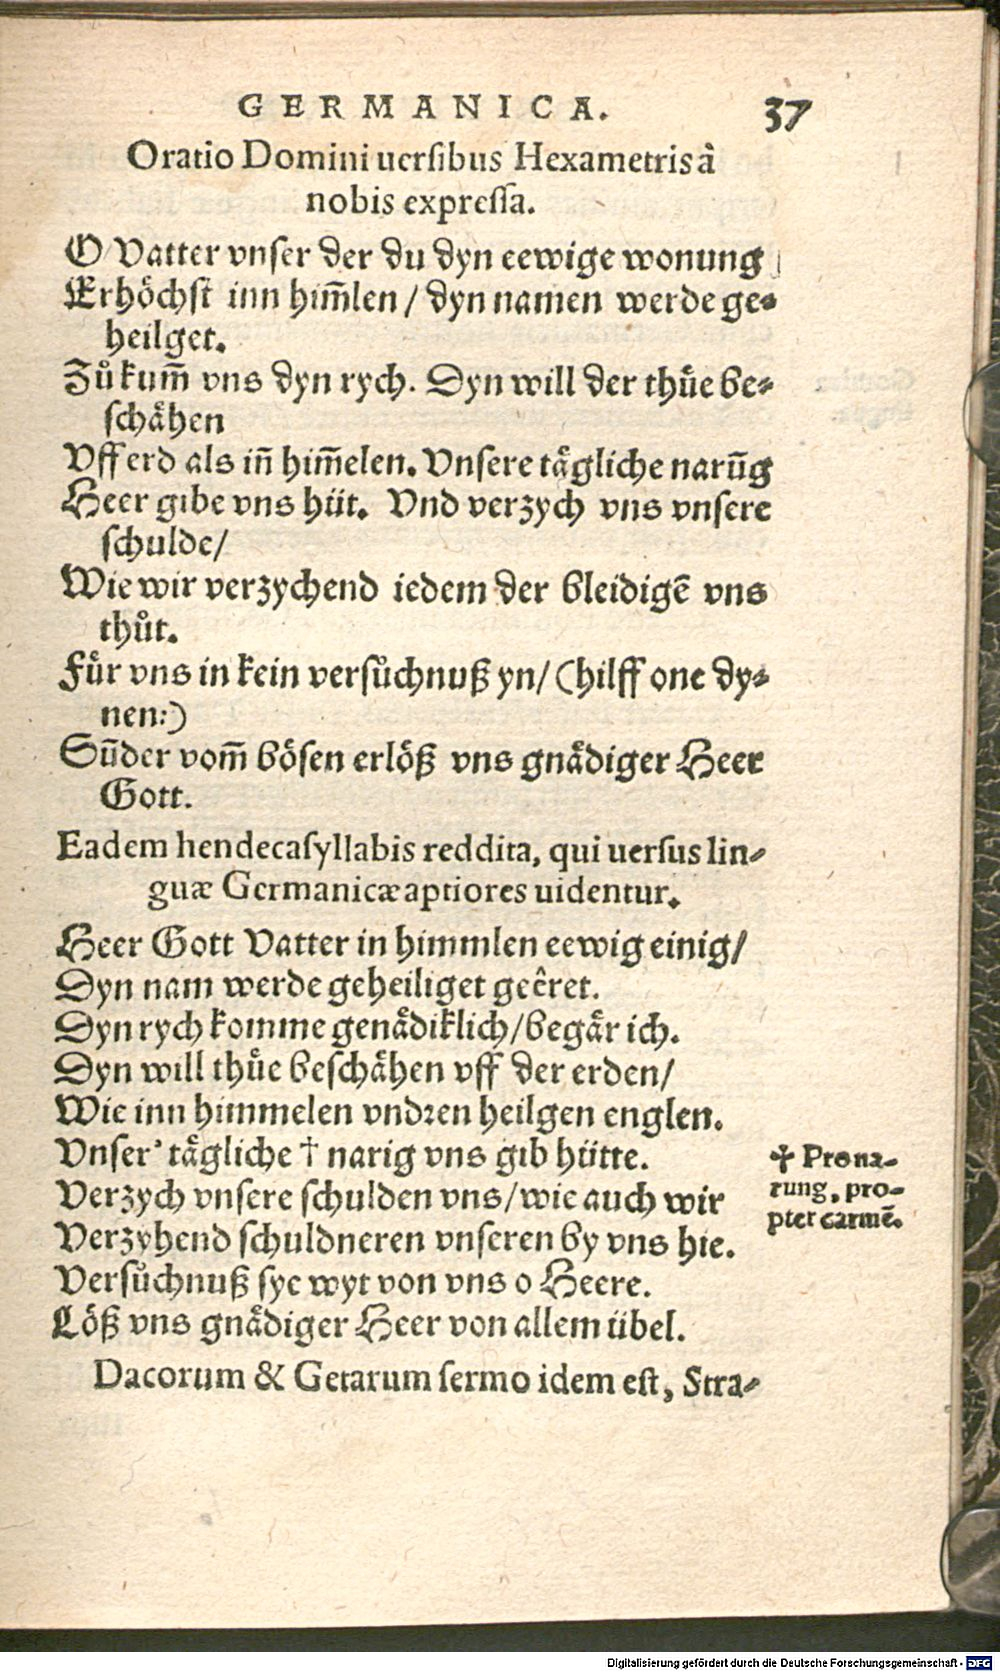 GERMANICA. 37
Oratio Domini uersibus Hexametris à
nobis expressa.
O Vatter vnser der du dyn eewige wonung
Erhöchst inn him̃len / dyn namen werde ge-
heilget.
Zůkum̃ vns dyn rych. Dyn will der thuͤe be-
schaͤhen
Vff erd als in̄ him̃elen. Vnsere taͤgliche narūg
Heer gibe vns hüt. Vnd verzych vns vnsere
schulde/
Wie wir verzychend iedem der bleidigē vns
thůt.
Fuͤr vns in kein versůchnuß yn/ (hilff one dy-
nen:)
Sūder vom̃ boͤsen erloͤß vns gnaͤdiger Heer
Gott.
Eadem hendecasyllabis reddita, qui uersus lin-
guæ Germanicæ aptiores uidentur.
Heer Gott Vatter in himmlen eewig einig/
Dyn nam werde geheiliget geêret.
Dyn rych komme genaͤdiklich/begaͤr ich.
Dyn will thuͤe beschaͤhen vff der erden/
Wie inn himmelen vndꝛen heilgen englen.
Vnser' taͤgliche † narig vns gib hütte.
Verzych vnsere schulden vns/wie auch wir
Verzyhend schuldneren vnseren by vns hie.
Versůchnuß sye wyt von vns o Heere.
Loͤß vns gnaͤdiger Heer von allem übel.
Dacorum & Getarum sermo idem est, Stra-
✣ Pro na-
rung, pro-
pter carmē.
Digitalisierung gefördert durch die Deutsche Forschungsgemeinschaft - DFG